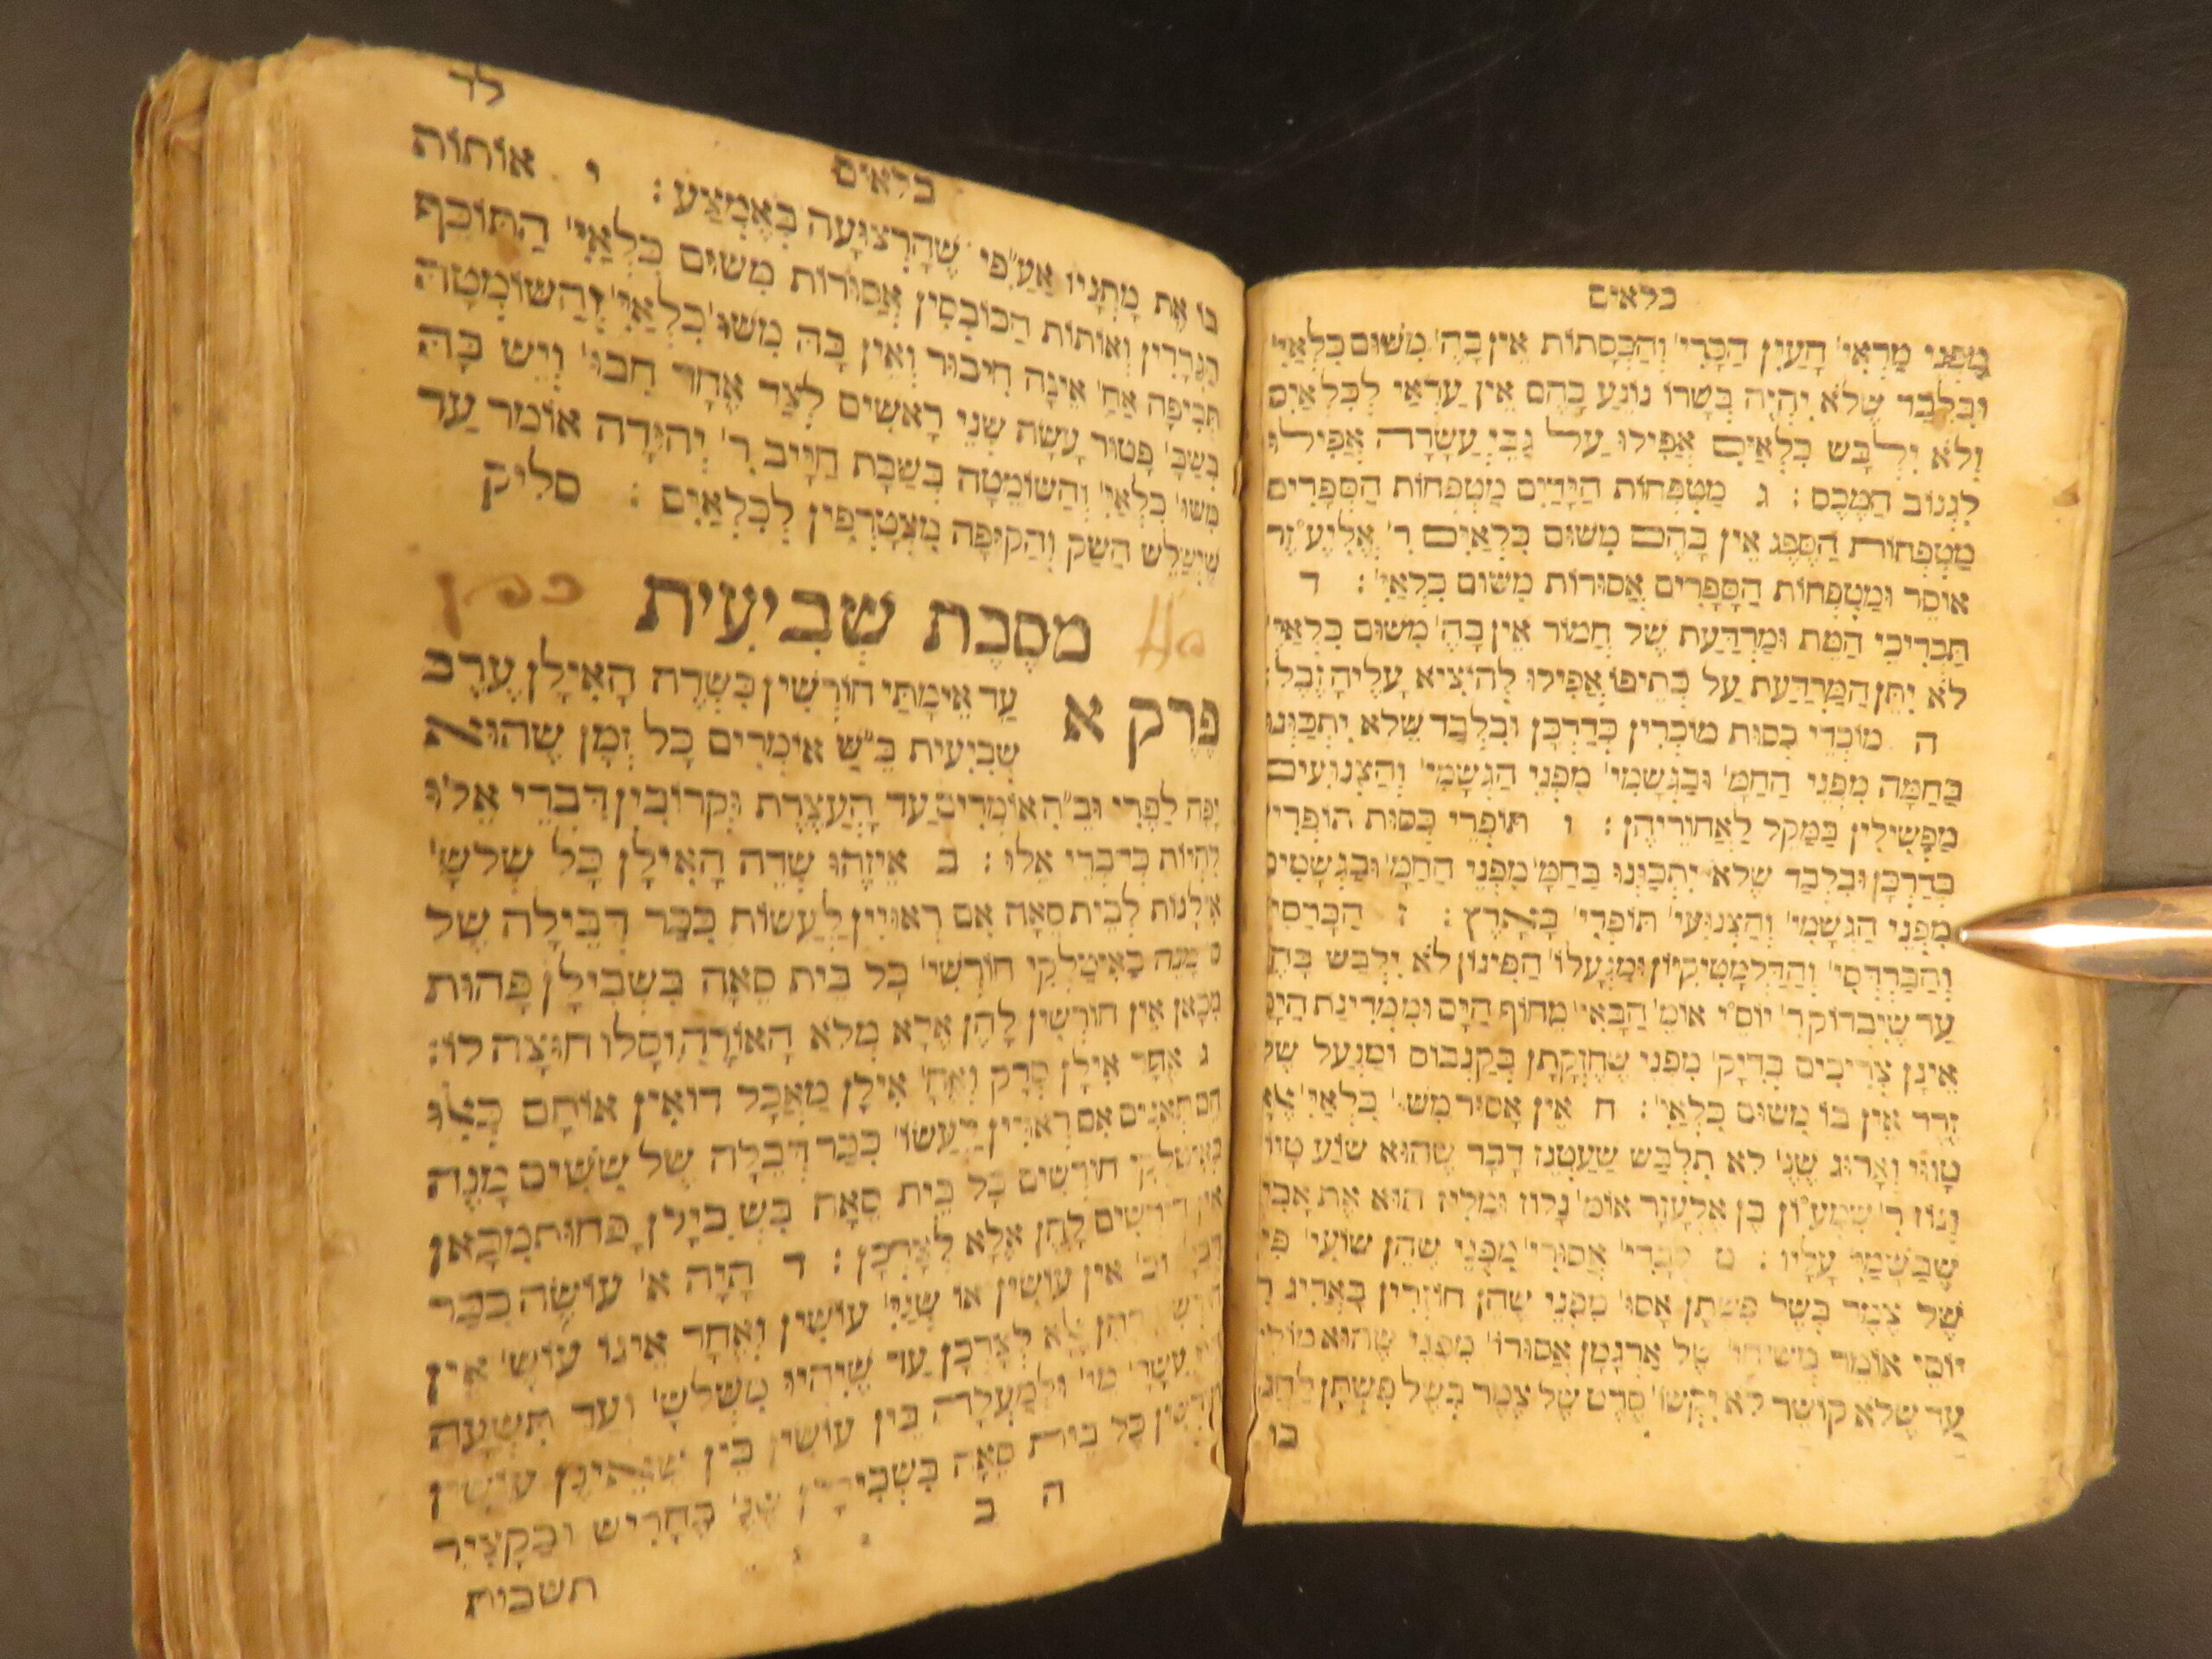 כלאים
מפני מראי' העין הכרי' והכסתות אין בה' משום כלאי'
ובלבד שלא יהיה בשרו נוגע בהם אין עראי לכלאים
ולא ילבש כלאים אפילו על גבי עשרה אפילו
לגנוב המכס : ג מטפחות הידים מטפחות הספרים
מטפחות הספג אין בהם משום כלאים ר' אליעזר
אוסר ומטפחות הספרים אסורות משום כלאי' : ד
תכריכי המת ומרדעת של חמור אין בה' משום כלאי'
לא יתן המרדעת על כתיפו אפילו להוציא עליה זבל :
ה מוכרי כסות מוכרין כדרכן ובלבד שלא יתכוונו
בחמה מפני החמ' ובגשמי' מפני הגשמי' והצנועים
מפשילין במקל לאחוריהן : ו תופרי כסות תופרי'
כדרכן ובלבד שלא יתכוונו בחמ' מפני החמ' ובגשמים
מפני הגשמי' והצנועי' תופרי' בארץ : ז הברסי'
והברדסי' והדלמטיקיון ומנעלו' הפינון לא ילבש בהן
עד שיבדוק ר' יוסי אומ' הבאי' מחוף הים וממדינת הים
אינן צריכים בדיק' מפני שחזקתן בקנבוס ומנעל של
זרד אין בו משום כלאי' : ח אין אסור משו' כלאי' אלא
טווי וארוג שנ' לא תלבש שעטנז דבר שהוא שוע טווי
ונוז ר' שמעון בן אלעזר אומ' נלוז ומליז הוא את אביו
שבשמי' עליו : ט לבדי' אסורי' מפני שהן שועי' פיף
של צמר בשל פשתן אסו' מפני שהן חוזרין באריג ר'
יוסי אומר משיחו' של ארגמן אסורו' מפני שהוא מולל
עד שלא קושר לא יקשו' סרט של צמר בשל פשתן לחגור
בו
כלאים לד
בו את מתניו אע"פי שהרצועה באמצע : י אותות
הגרדין ואותות הכובסין אסורות משום כלאי' התוכף
תכיפה אח' אינה חיבור ואין בה משו' כלאי' והשומטה
בשב' פטור עשה שני ראשים לצד אחד חבו' ויש בה
משו' כלאי' והשומטה בשבת חייב ר' יהודה אומר עד
שישלש השק והקופה מצטרפין לכלאים : סליק
מסכת שביעית
פרק א עד אימתי חורשין בשדה האילן ערב
שביעית ב"ש אומרים כל זמן שהוא
יפה לפרי וב"ה אומרים עד העצרת וקרובין דברי אלו
להיות כדברי אלו : ב איזהו שדה האילן כל שלש'
אילנות לבית סאה אם ראויין לעשות ככר דבילה של
ס מנה באיטלקי חורשי' כל בית סאה בשבילן פחות
מכאן אין חורשין להן אלא מלא האורה וסלו חוצה לו :
ג אחד אילן סרק ואח' אילן מאכל רואין אותם כאלו
הם תאנים אם ראויין לעשו' ככר דבלה של ששים מנה
באיטלקי חורשים כל בית סאה בשבילן פחות מכאן
אין חורשים להן אלא לצרכן : ד היה א' עושה ככר
דבי' וב' אין עושין או שני' עושין ואחד אינו עוש' אין
חורשין להן אלא לצרכן עד שיהיו משלש' ועד תשעה
היו עשר' מי' ולמעלה בין עושין בין שאינן עושין
חורשין כל בית סאה בשבילן שנ' בחריש ובקציר
ה ב
תשבות